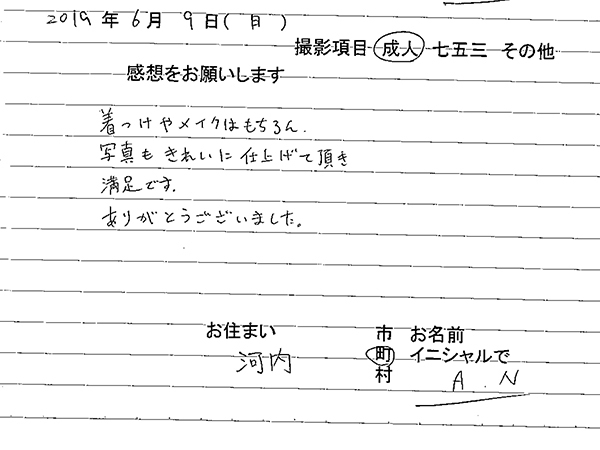 2019年 6月 9日(日)
撮影項目 成人 七五三 その他
感想をお願いします
着つけやメイクはもちろん、
写真も きれいに 仕上げて頂き
満足です。
ありがとうございました。
お住まい 市 お名前
河内 町 イニシャルで
村 A.N